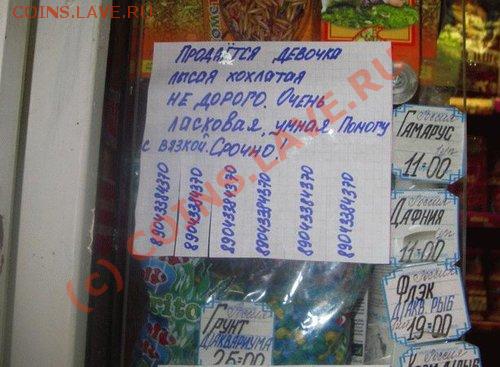 COINS.LAVE.RU
ПРОДАЁТСЯ ДЕВОЧКА
ЛЫСАЯ ХОХЛАТАЯ
НЕ ДОРОГО. ОЧЕНЬ
ЛАСКОВАЯ, УМНАЯ ПОМОГУ
С ВЯЗКОЙ. СРОЧНО!
89043384370
89043384370
89043384370
89043384370
89043384370
89043384370
Россия
ГАМАРУС
11=00
Россия
ДАФНИЯ
11=00
Россия
ФЛЭК
Д/АКВ. РЫБ
19=00
Россия
ГРУНТ
Д/АКВАРИУМА
25=00
(c) COINS.LAVE.RU